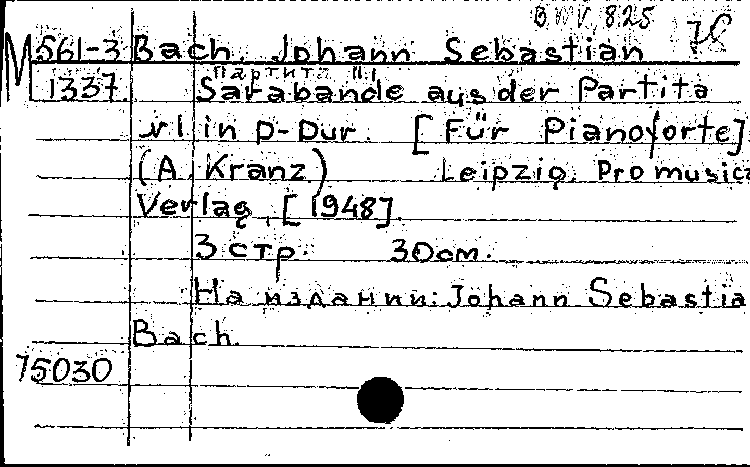 BWV 825
М 561-3 Bach, Johann Sebastian
Партита №1
1337. Sarabande aus der Partita
№1 in D-Dur. [Für Pianoforte]
(A. Kranz) Leipzig, Pro musica
Verlag, [1948].
3 стр. 30 см.
На издании: Johann Sebastia
Bach.
15030